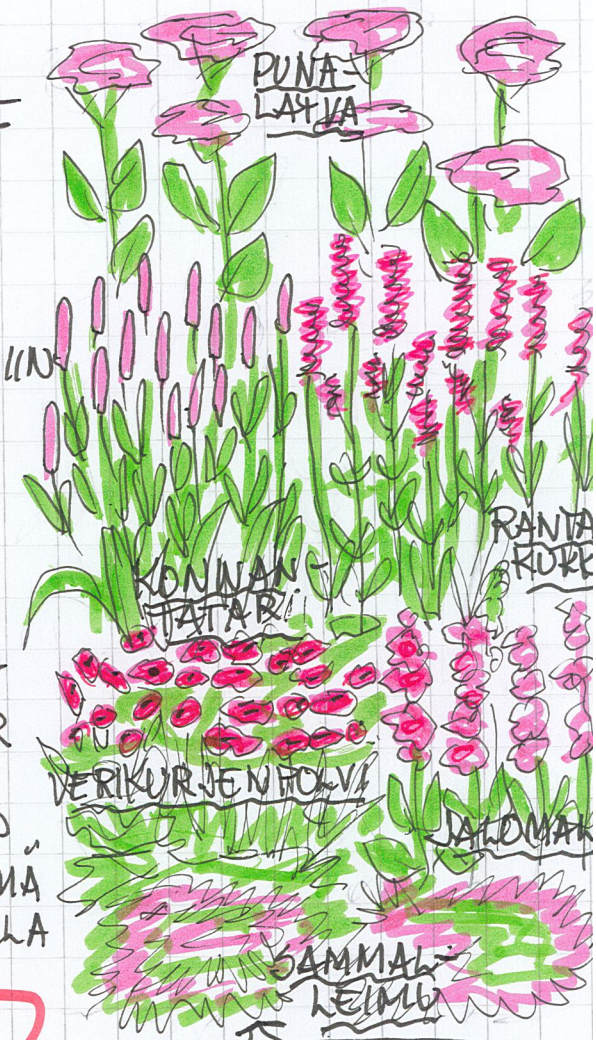 PUNA-
LATVA
IIN
KONNAN-
TATAR
RANTA
KUKK
VERIKURJENPOLVI
JALOMAL
SAMMAL-
LEIMU
R
D
MÄ
LLA